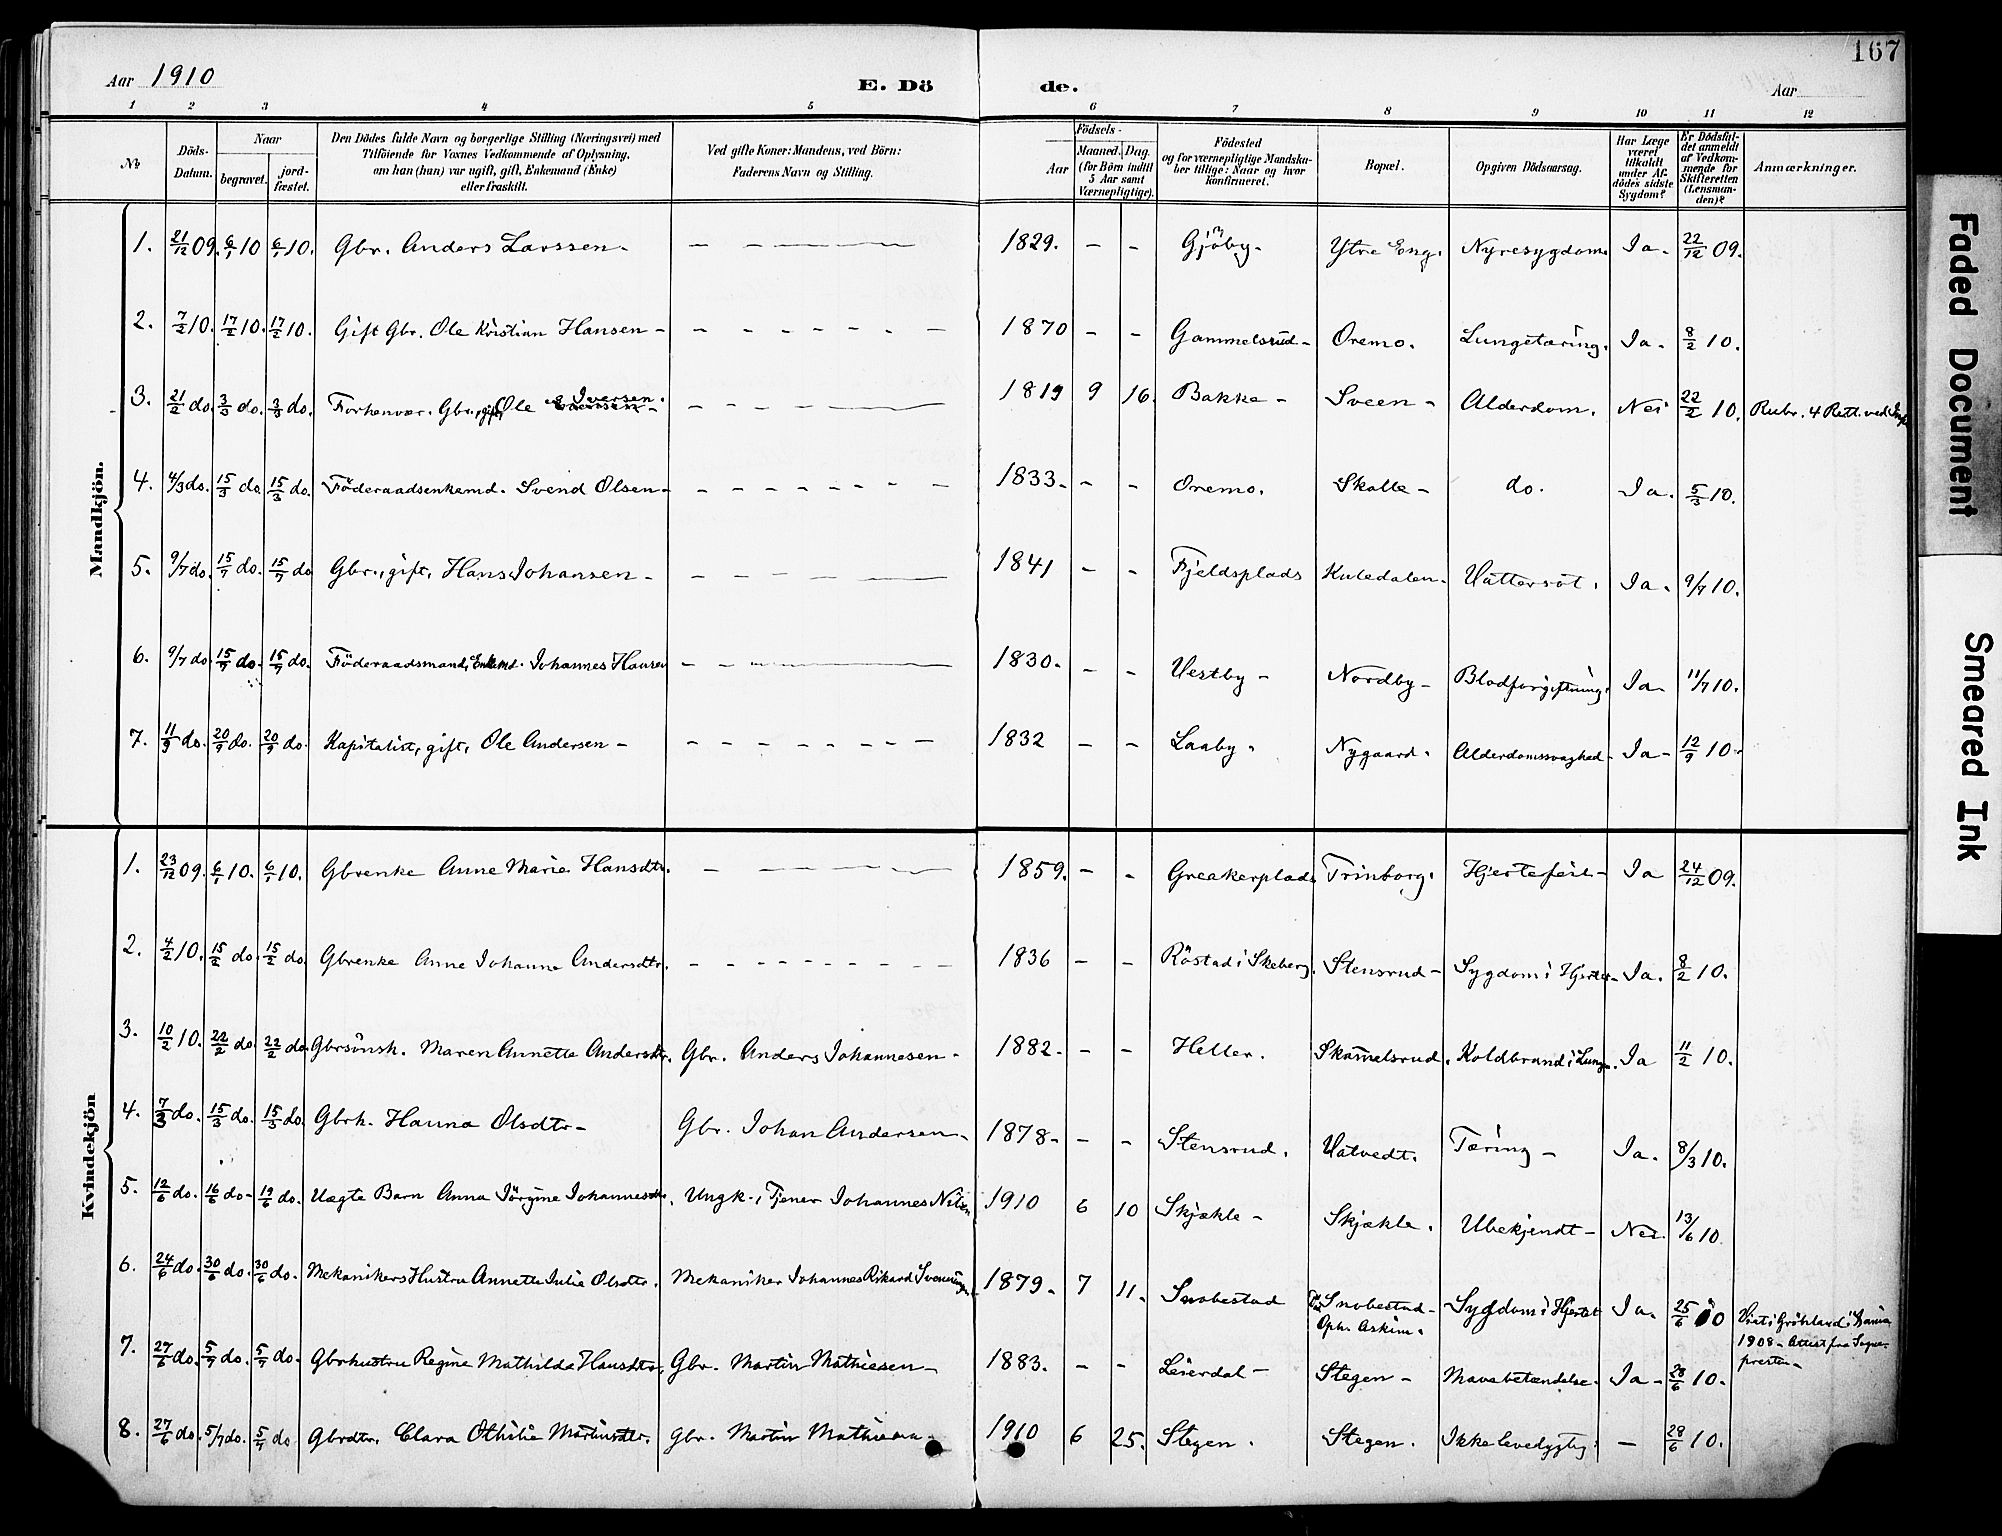 167
Aar 1910 E. Dö de. Aar
1 2 3 4 5 6 7 8 9 10 11 12
№ Döds-Datum. Naar begravet. jord-fæstet. Den Dödes fulde Navn og borgerlige Stilling (Næringsvei) med Tilföiende for Voxnes Vedkommende af Oplysning, om han (hun) var ugift, gift, Enkemand (Enke) eller fraskilt. Ved gifte Koner: Mandens, ved Börn: Faderens Navn og Stilling. Födsels- Aar Maaned. Dag. (for Börn indtil 5 Aar samt Værnepligtige). Födested og for værnepligtige Mandskaber tillige: Naar og hvor konfirmeret. Bopæl. Opgiven Dödsaarsag. Har Læge været tilkaldt under Afdödes sidste Sygdom? Er Dödsfaldet anmeldt af Vedkommende for Skifteretten (Lensmanden)? Anmærkninger.
Mandkjön.
1. 21/12 09. 6/1 10 6/1 10. Gbr. Anders Larssen - — — — 1829. - - Gjöby - Ytre Eng. Nyresygdom Ja - 22/12 09.
2. 7/2 10. 17/2 10. 17/2 10. Gift Gbr. Ole Kristian Hansen - - - - 1870 - - Gammelsrud - Oremo. Lungetæring. Ja - 8/2 10.
3. 21/2 do. 3/3 do. 3/3 do. Forhenvær. Gbr., gift, Ole Iversen. - - - 1819 9 16. Bakke - Sveen - Alderdom. Nei 22/2 10. Rubr. 4 Rett. ved
4. 4/3 do. 15/3 do. 15/3 do. Föderaadsenkemd. Svend Olsen - - - - 1833. - - Oremo. Skolle - do. Ja. 5/3 10.
5. 9/7 do. 15/7 do. 15/7 do Gbr., gift, Hans Johansen - - - - 1841 - - Fjeldsplads Kuledalen. Vattersot. Ja. 9/7 10.
6. 9/7 do 15/7 do. 15/7 do. Föderaadsmand, Enkemd. Johannes Hansen - - - 1830. - - Vestby - Nordby - Blodforgiftning. Ja - 11/7 10.
7. 11/9 do. 20/9 do. 20/9 do. Kapitalist, gift, Ole Andersen - - - - 1832 - - Laaby. Nygaard. Alderdomssvaghed - Ja - 12/9 10.
Kvindekjön
1. 23/12 09. 6/1 10. 6/1 10. Gbrenke Anne Marie Hansdtr. - - - 1859. - - Greakerplads Trinborg. Hjertefeil - Ja 24/12 09.
2. 4/2 10. 15/2 do. 15/2 do. Gbrenke Anne Johanne Andersdtr. - - - 1836 - - Röstad i Skeberg. Stensrud - Sygdom i Hjertet - Ja. 8/2 10.
3. 10/2 10. 22/2 do 22/2 do. Maren Annette Andersdtr. Gbr. Anders Johannesen - 1882. - - Heller. Skamelsrud. Koldbrand i Lungen. Ja 11/2 10.
4. 7/3 do. 15/3 do. 15/3 do. Gbrh. Hanna Olsdtr - Gbr. Johan Andersen - 1878 - - - Stensrud. Vatvedt. Tæring - Ja. 8/3 10.
5. 12/6 do. 16/6 do - 19/6 do. Uægte Barn Anna Jörgine Johannesdtr. Ungk., Tjener Johannes Nilsen 1910 6 10 Skjækle - Skjækle. Ubekjendt - Nei. 13/6 10.
6. 24/6 do. 30/6 do. 30/6 do. Mekanikers Hustru Annette Julie Olsdtr. Mekaniker Johannes Rikard Svenningsen 1879. 7 11. Snobestad Snobestad - Oph. Askim. Sygdom i Hjertet Ja. 25/6 10 Viet i Grönland i Kra̅nia 1908 - Attest fra Sogne-presten -
7. 27/6 do. 5/7 do. 5/7 do. Gbrhustru Regine Mathilde Hansdtr. Gbr. Martin Mathiesen - 1883. - - Leierdal - Stegen - Mavebetændelse. Ja - 28/6 10.
8. 27/6 do. 5/7 do. 5/7 do Gbrdtr. Clara Othilie Martinsdtr. Gbr. Martin Mathiesen. 1910 6 25. Stegen. Stegen. Ikke levedygtig. — 28/6 10.
Faded Document
Smeared Ink